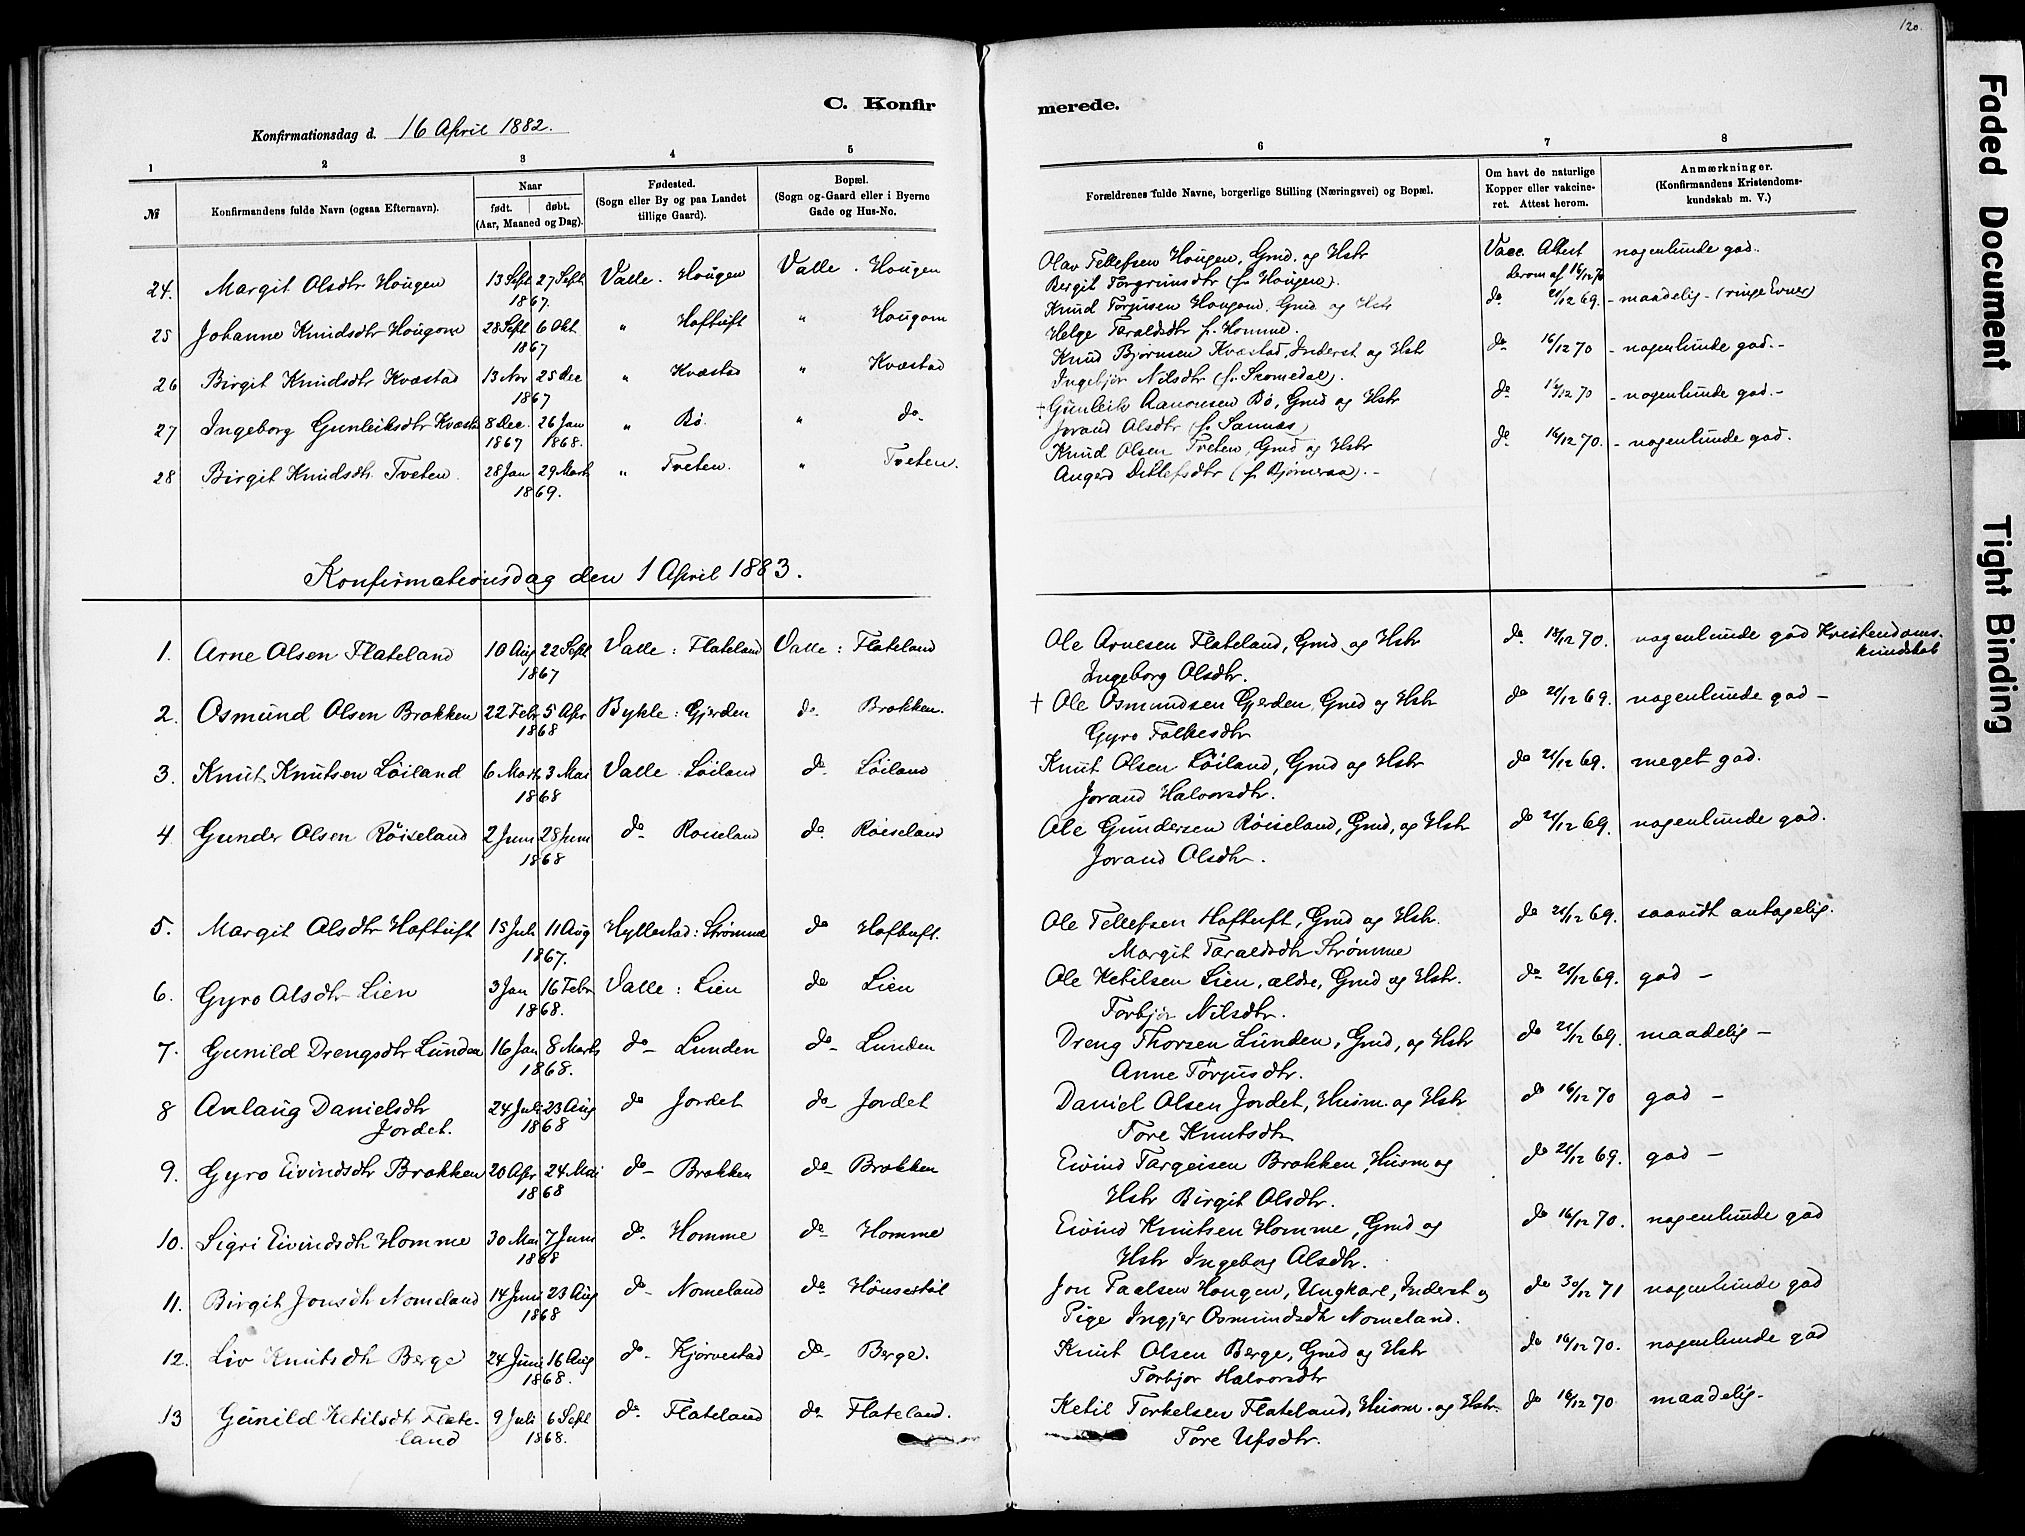 120.
C. Konfirmerede.
Konfirmationsdag d. 16 April 1882.
1 2 3 4 5 6 7 8
№
Konfirmandens fulde Navn (ogsaa Efternavn).
Naar
født. døbt.
(Aar, Maaned og Dag).
Fødested.
(Sogn eller By og paa Landet
tillige Gaard).
Bopæl.
(Sogn og Gaard eller i Byerne
Gade og Hus-No.
Forældrenes fulde Navne, borgerlige Stilling (Næringsvei) og Bopæl.
Om havt de naturlige
Kopper eller vakcine-
ret. Attest herom.
Anmærkninger.
(Konfirmandens Kristendoms-
kundskab m. V.)
24. Margit Olsdtr Hougen 13 Sept 27 Sept 1867. Valle. Hougen Valle. Hougen Olav Tellefsen Hougen, Grmd. og Hstr Vacc. Attest nogenlunde god.
Bergit Torgrimsdtr (f. Hougen). derom af 16/12 70
25 Johanne Knudsdtr Hougom 28 Sept 6 Okt. 1867 " Haftuft " Hougom Knud Torjusen Hougom, Grmd og Hstr do 21/12 69. - maadelig - (ringe Evner)
Helge Taraldsdtr f. Homme.
26 Birgit Knudsdtr Kvæstad 13 Nov 25 Dec 1867 " Kvæstad " Kvæstad Knud Bjørnsen Kvæstad, Inderst og Hstr do 16/12 70 - nogenlunde god. -
Ingebjør Nilsdtr (f. Skomedal).
27 Ingeborg Gunleiksdtr Kvæstad 8 Dec. 1867 26 Jan 1868. " Bø. " do. † Gunleik Aanonsen Bø, Grmd og Hstr do 16/12 70 - nogenlunde god. -
Jorand Olsdtr (f. Sannæs)
28 Birgit Knudsdtr. Tveten. 28 Jan 29 Marts 1869. " Tveten. " Tveten. Knud Olsen Tveten, Grmd og Hstr do 16/12 70. - nogenlunde god.
Angerd Detlefsdtr (f. Bjørneraa). -
Konfirmationsdag den 1 April 1883.
1. Arne Olsen Flateland 10 Aug 22 Sept 1867 Valle: Flateland Valle: Flateland Ole Arnesen Flateland, Grmd og Hstr do 16/12 70. nogenlunde god Kristendoms-
Ingeborg Olsdtr. kundskab
2. Osmund Olsen Brokken 22 Febr 5 Apr 1868 Bykle: Gjerden do. Brokken. † Ole Osmundsen Gjerden, Grmd og Hstr do 21/12 69. nogenlunde god -
Gyro Folkesdtr
3. Knut Knutsen Løiland 6 Marts 3 Mai 1868 Valle. Løiland do. Løiland Knut Olsen Løiland, Grmd og Hstr do 21/12 69. meget god.
Jorand Halvorsdtr.
4. Gunder Olsen Røiseland 2 Juni 28 Juni 1868 do Røiseland do. Røiseland Ole Gundersen Røiseland, Grmd, og Hstr do 21/12 69. nogenlunde god.
Jorand Olsdtr.
5. Margit Olsdtr Haftuft 15 Juli 11 Aug 1867. Hyllestad: Strømme do Haftuft. Ole Tellefsen Haftuft, Grmd og Hstr. do 21/12 69. saavidt antagelig.
Margit Taraldsdtr Strømme
6. Gyro Olsdtr Lien 3 Jan 16 Febr 1868. Valle: Lien do Lien Ole Ketilsen Lien, ældre, Grmd og Hstr. do 21/12 69. god -
Torbjør Nilsdtr.
7. Gunild Drengsdtr Lunden 16 Jan 8 Marts 1868. do Lunden do Lunden Dreng Thorsen Lunden, Grmd, og Hstr do 21/12 69. maadelig -
Anne Tørjusdtr.
8 Aslaug Danielsdtr 24 Juli 23 Aug 1868 do Jordet do Jordet Daniel Olsen Jordet, Husm. og Hstr do 16/12 70 god -
Jordet. Tore Knutsdtr
9. Gyro Eivindsdtr Brokken 20 Apr 24 Mai 1868 do Brokken do Brokken Eivind Targeisen Brokken, Husm og do 21/12 69. god -
Hstr Birgit Olsdtr.
10. Sigri Eivindsdtr Homme 30 Mai 7 Juni 1868 do Homme do Homme Eivind Knutsen Homme, Grmd og do 16/12 70. nogenlunde god
Hstr Ingeborg Olsdtr.
11. Birgit Jonsdtr Nomeland 14 Juni 23 Aug 1868 do Nomeland do Hønsestøl Jon Paalsen Hougen, Ungkarl, Inderst og do 30/12 71 nogenlunde god
Pige Ingjer Osmundsdtr Nomeland.
12. Liv Knutsdtr Berge 24 Juni 16 Aug 1868. do Kjørvestad do Berge. Knut Olsen Berge, Grmd og Hstr do 16/12 70. nogenlunde god
Torbjør Halvorsdtr
13 Gunild Ketilsdtr Flate- 9 Juli 6 Sept 1868. do Flateland do Flateland. Ketil Torkelsen Flateland, Husm. og Hstr. do 16/12 70 maadelig -
land Tore Ufsdtr.
Faded Document
Tight Binding